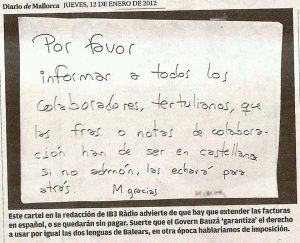 Diario de Mallorca JUEVES, 12 DE ENERO DE 2012
Por favor
informar a todos los
colaboradores, tertulianos, que
las fras o notas de colabora-
ción han de ser en castellano
si no admón, las echará para
atrás. M gracias
Este cartel en la redacción de IB3 Ràdio advierte de que hay que extender las facturas
en español, o se quedarán sin pagar. Suerte que el Govern Bauzá 'garantiza' el derecho
a usar por igual las dos lenguas de Balears, en otra época hablaríamos de imposición.